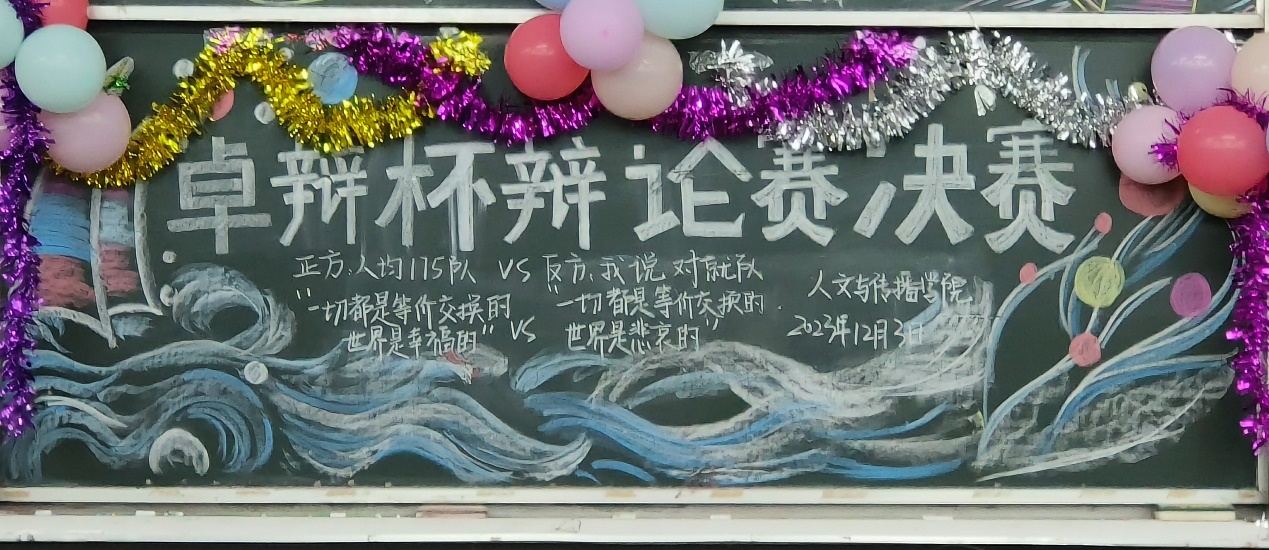 卓辩杯辩论赛决赛
正方:人均175队 VS 反方:我说对就队
"一切都是等价交换的世界是幸福的" VS "一切都是等价交换的世界是悲哀的"
人文与传播学院
2023年12月3日